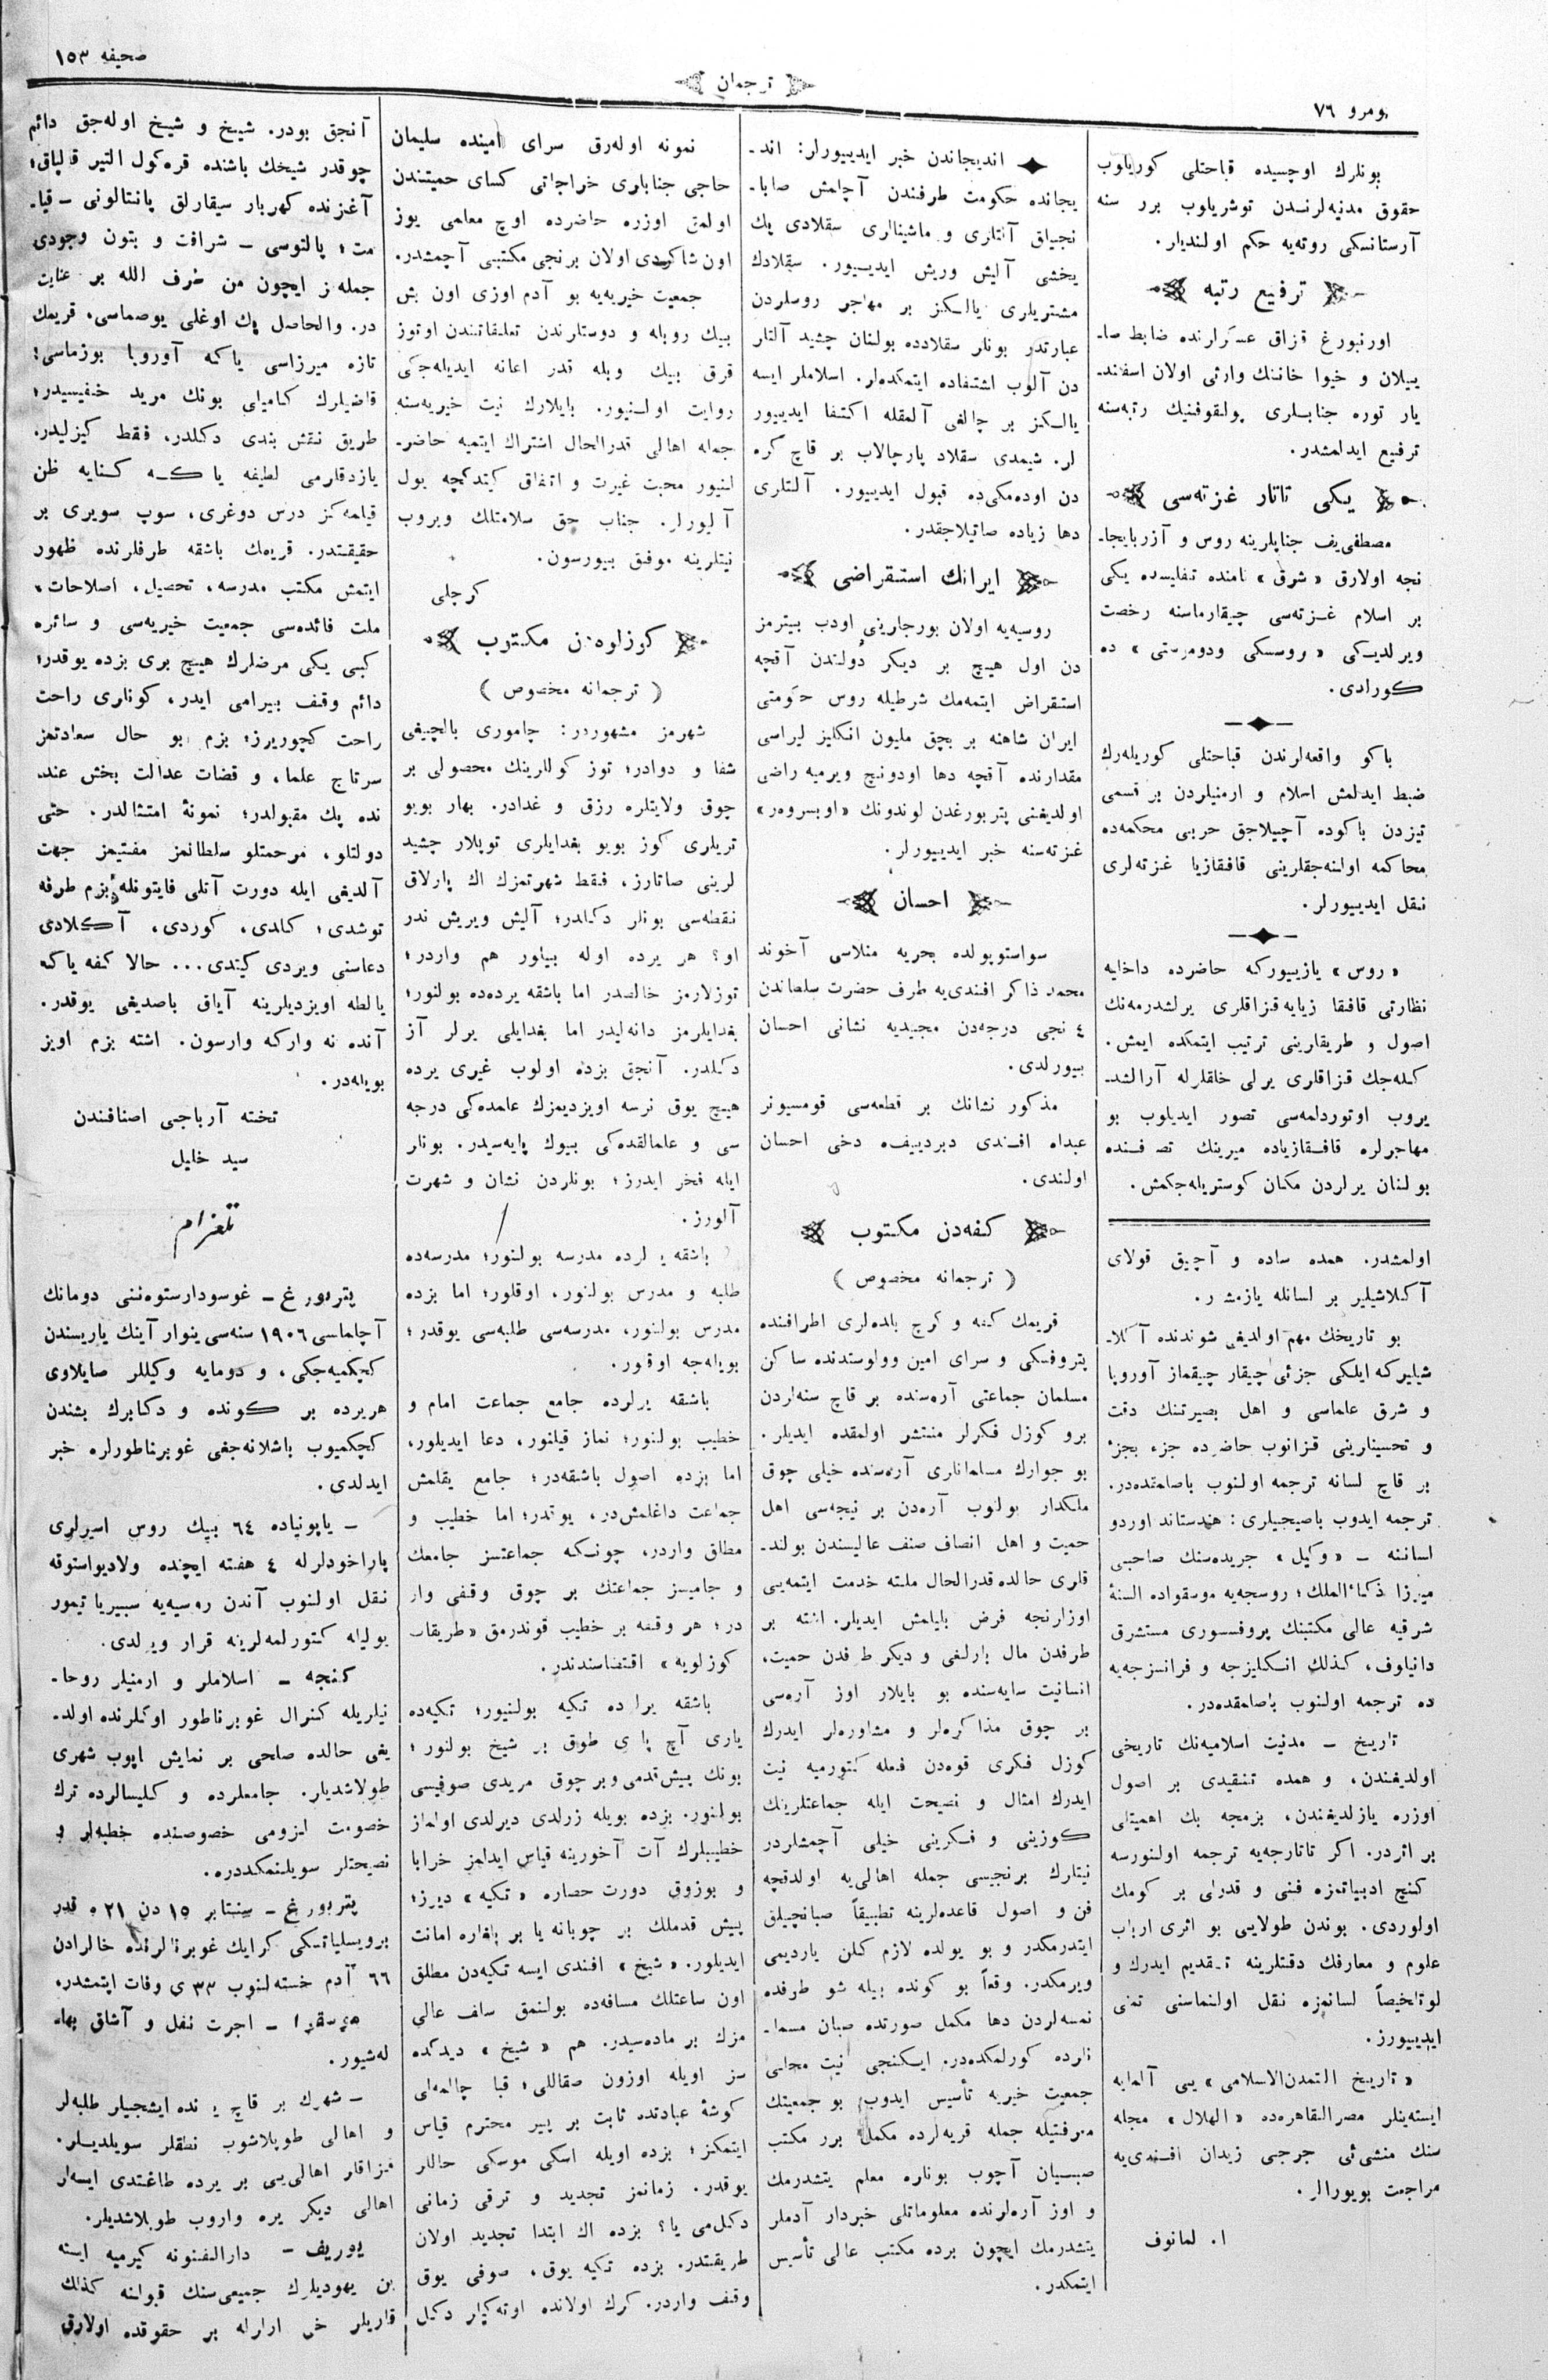 نومرو ٧٦
ترجمان
صحیفه ١٥٣
بونلرك اوچسیده قباحتلی كوریلوب
حقوق مدنیه‌لرندن توشریلوب برر سنه
آرستانسكی روته‌یه حكم اولندیلر.
ترفیع رتبه
اورنبورغ قزاق عسكرلرنده ضابط صا-
ییلان و خیوا خاننك وارثی اولان اسفند-
یار توره جنابلری پولقوفنیك رتبه‌سنه
ترفیع ایدلمشدر.
یكی تاتار غزته‌سی
مصطفی‌یف جنابلرینه روس و آزربایجا-
نجه اولارق «شرق» نامنده تفلیسده یكی
بر اسلام غزته‌سی چیقارماسنه رخصت
ویرلدیكی «روسسكی ودومرستی» ده
كورلدی.
باكو واقعه‌لرندن قباحتلی كوریله‌رك
ضبط ایدلمش اسلام و ارمنیلردن بر قسمی
تیزدن باكوده آچیلاجق حربی محكمه‌ده
محاكمه اولنه‌جقلرینی قافقازیا غزته‌لری
نقل ایدییورلر.
«روس» یازییوركه حاضرده داخلیه
نظارتی قافقا زیایه قزاقلری یرلشدرمه‌نك
اصول و طریقلرینی ترتیب ایتمكده ایمش.
كله‌جك قزاقلری یرلی خلقلرله آرالشد-
یروب اوتوردلمه‌سی تصور ایدیلوب بو
مهاجرلره قافقازیاده میرینك تصرفنده
بولنان یرلردن مكان كوستریله‌جكمش.
اولمشدر. همده ساده و آچیق قولای
آكلاشیلیر بر لسانله یازمشدر.
بو تاریخك مهم اولدیغی شوندنده آكلا-
شیلیركه ایلكی جزئی چیقار چیقماز آوروپا
و شرق علماسی و اهل بصیرتنك دقت
و تحسینلرینی قزانوب حاضرده جزء بجزء
بر قاچ لسانه ترجمه اولنوب باصلمقده‌در.
ترجمه ایدوب باصیجیلری: هندستاند اوردو
لساننه - «وكیل» جریده‌سنك صاحبی
میرزا ذكاءالملك؛ روسجه‌یه موسقواده السنۀ
شرقیه عالی مكتبنك پروفسوری مستشرق
دانیلوف، كذلك انكلیزجه و فرانسزجه‌یه
ده ترجمه اولنوب باصلمقده‌در.
تاریخ - مدنیت اسلامیه‌نك تاریخی
اولدیغندن، و همده تنقیدی بر اصول
اوزره یازلدیغندن، بزمجه پك اهمیتلی
بر اثردر. اكر تاتارجه‌یه ترجمه اولنورسه
كنج ادبیاتمزه فنی و قدرلی بر كومك
اولوردی. بوندن طولایی بو اثری ارباب
علوم و معارفك دقتلرینه تقدیم ایدرك و
لوتلخیصاً لسانمزه نقل اولنماسنی تمنی
ایدییورز.
«تاریخ التمدن‌الاسلامی» یی آلمایه
ایسته‌ینلر مصرالقاهره‌ده «الهلال» مجله
سنك منشیٔ‌ئی جرجی زیدان افندی‌یه
مراجعت بویورالر.
ا. لمانوف
اندیجاندن خبر ایدییورلر: اند-
یجانده حكومت طرفندن آچلمش صابا-
نجیلق آلتلری و ماشینالری سقلادی پك
یخشی آلیش ویریش ایدییور. سقلادك
مشتریلری یالكز بر مهاجر روسلردن
عبارتدر بونلر سقلادده بولنان چشید آلتلر
دن آلوب استفاده ایتمكده‌لر. اسلاملر ایسه
یالكز بر چالغی آلمقله اكتفا ایدییور
لر. شیمدی سقلاد پارچالاب بر قاچ كره
دن اوده‌مكی‌ده قبول ایدییور. آلتلری
دها زیاده صاتیلاجقدر.
ایرانك استقراضی
روسیه‌یه اولان بورجلرینی اودب بیترمز
دن اول هیچ بر دیكر دولتدن آقچه
استقراض ایتمه‌مك شرطیله روس حكومتی
ایران شاهنه بر بچق ملیون انكلیز لیراسی
مقدارنده آقچه دها اودونج ویرمیه راضی
اولدیغنی پتربورغدن لوندونك «اوبسرور»
غزته‌سنه خبر ایدییورلر.
احسان
سواستوپولده بحریه منلاسی آخوند
محمد ذاكر افندی‌یه طرف حضرت سلطاندن
٤ نجی درجه‌دن مجیدیه نشانی احسان
بیورلدی.
مذكور نشانك بر قطعه‌سی قومسیونر
عبدالله افندی دبردییف‌ه دخی احسان
اولندی.
كفه‌دن مكتوب
( ترجمانه مخصوص )
قریمك كفه و كرچ بلده‌لری اطرافنده
پتروفسكی و سرای امین وولوستندنده ساكن
مسلمان جماعتی آره‌سنده بر قاچ سنه‌لردن
برو كوزل فكرلر منتشر اولمقده ایدیلر.
بو جوارك مسلمانلری آره‌سنده خیلی چوق
ملكدار بولنوب آره‌دن بر نیچه‌سی اهل
حمیت و اهل انصاف صنف عالیسندن بولند-
قلری حالده قدرالحال ملته خدمت ایتمه‌یی
اوزلرنجه فرض بایلمش ایدیلر. اشته بر
طرفدن مال بارلغی و دیكر طرفدن حمیت،
انسانیت سایه‌سنده بو بایلار اوز آره‌سی
بر چوق مذاكره‌لر و مشاوره‌لر ایدرك
كوزل فكری قوه‌دن فعله كتورمیه نیت
ایدرك امثال و نصیحت ایله جماعتلرینك
كوزینی و فكرینی خیلی آچمشلردر
نیتلرك برنجیسی جمله اهالی‌یه اولدقچه
فن و اصول قاعده‌لرینه تطبیقاً صبانچیلق
ایتدرمكدر و بو یولده لازم كلن یاردیمی
ویرمكدر. وقعاً بو كونده بیله شو طرفده
نمسه‌لردن دها مكمل صورتده صبان مسلما-
نلرده كورلمكده‌در. ایكنجی نیت محلی
جمعیت خیریه تأسیس ایدوب بو جمعیتك
معرفتیله جمله قریه‌لرده مكمل برر مكتب
صبیان آچوب بونلره معلم یتشدرمك
و اوز آره‌لرنده معلوماتلی خبردار آدملر
یتشدرمك ایچون برده مكتب عالی تأسیس
ایتمكدر.
نمونه اوله‌رق سرای امینده سلیمان
حاجی جنابلری خراجاتی كسای حمیتندن
اولمق اوزره حاضرده اوچ معلمی یوز
اون شاكردی اولان برنجی مكتبی آچمشدر.
جمعیت خیریه‌یه بو آدم اوزی اون بش
بیك روبله و دوستلرندن تعلقاتندن اوتوز
قرق بیك روبله قدر اعانه ایدیله‌جكی
روایت اولنیور. بایلارك نیت خیریه‌سنه
جمله اهالی قدرالحال اشتراك ایتمیه حاضر-
لنیور محبت غیرت و اتفاق كیتدكچه یول
آلیورلر. جناب حق سلامتلك ویروب
نیتلرینه موفق بیورسون.
كرچلی
كوزلوه‌دن مكتوب
( ترجمانه مخصوص )
شهرمز مشهوردر: چاموری بالچیغی
شفا و دوادر؛ توز كوللرینك محصولی بر
چوق ولایتلره رزق و غدادر. بهار بویو
تریلری كوز بویو بغدایلری توپلار چشید
لرینی صاتارز، فقط شهرتمزك اك پارلاق
نقطه‌سی بونلر دكلدر؛ آلیش ویریش ندر
او؟ هر یرده اوله بیلور هم واردر؛
توزلارمز خالصدر اما باشقه یرده‌ده بولنور؛
بغدایلرمز دانه‌لیدر اما بغدایلی یرلر آز
دكلدر. آنجق بزده اولوب غیری یرده
هیچ یوق نرسه اویزدیمزك علمده‌كی درجه
سی و علمالقده‌كی بیوك پایه‌سیدر. بونلر
ایله فخر ایدرز؛ بونلردن نشان و شهرت
آلورز.
باشقه یرلرده مدرسه بولنور؛ مدرسه‌ده
طلبه و مدرس بولنور، اوقلور؛ اما بزده
مدرس بولنور، مدرسه‌سی طلبه‌سی یوقدر؛
بویله‌جه اوقور.
باشقه یرلرده جامع جماعت امام و
خطیب بولنور؛ نماز قیلنور، دعا ایدیلور،
اما بزده اصول باشقه‌در؛ جامع یقلمش
جماعت داغلمش‌در، یوقدر؛ اما خطیب و
مطلق واردر، چونكه جماعتسز جامعك
و جامعسز جماعتك بر چوق وقفی وار
در؛ هر وقفه بر خطیب قوندرمق «طریقات
كوزلویه» اقتضاسندندر.
باشقه یرلرده تكیه بولنیور؛ تكیه‌ده
یاری آچ یاری طوق بر شیخ بولنور؛
بونك پیش قدمی و بر چوق مریدی صوفیسی
بولنور. بزده بویله زرلدی دیرلدی اولماز
خطیبلرك آت آخورینه قیاس ایدلمز خرابا
و بوزوق دورت حصاره «تكیه» دیرز؛
پیش قدملك بر چوبانه یا بر بقاره امانت
ایدیلور. «شیخ» افندی ایسه تكیه‌دن مطلق
اون ساعتلك مسافه‌ده بولنمق سلف عالی
مزك بر ماده‌سیدر. هم «شیخ» دیدكده
سز اویله اوزون صقاللی، قبا چالمه‌لی
كوشۀ عبادتده ثابت بر پیر محترم قیاس
ایتمكز؛ بزده اویله اسكی موسكی حاللر
یوقدر. زمانمز تجدید و ترقی زمانی
دكل‌می یا؟ بزده اك ابتدا تجدید اولان
طریقتدر. بزده تكیه یوق، صوفی یوق
وقف واردر. كرك اولانده اوته‌كیلر دكل
آنجق بودر. شیخ و شیخ اوله‌جق دائم
چوقدر شیخك باشنده قره‌كول التیر قالپاق؛
آغزنده كهربار سیقارلق پانتالونی - قیا-
مت؛ پالتوسی - شرافت و بتون وجودی
جمله‌مز ایچون من طرف الله بر عنایت
در. والحاصل پك اوغلی یوصماسی، قریمك
تازه میرزاسی یاكه آوروپا بوزماسی؛
قاضیلرك كامیلی بونك مرید خفیسیدر؛
طریق نقش بندی دكلدر، فقط كیزلیدر.
یازدقلرمی لطیفه یا كه كنایه ظن
قیلمه‌كز درس دوغری، سوپ سویری بر
حقیقتدر. قریمك باشقه طرفلرنده ظهور
ایتمش مكتب مدرسه، تحصیل، اصلاحات،
ملت فائده‌سی جمعیت خیریه‌سی و سائره
كبی یكی مرضلرك هیچ بری بزده یوقدر؛
دائم وقف بیرامی ایدر، كونلری راحت
راحت كچوریرز؛ بزم بو حال سعادتمز
سرتاج علما، و قضات عدالت بخش عند-
نده پك مقبولدر؛ نمونۀ امتثالدر. حتی
دولتلو، مرحمتلو سلطانمز مفتیمز جهت
آلدیغی ایله دورت آتلی فایتونله بزم طرفه
توشدی؛ كلدی، كوردی، آكلادی
دعاسنی ویردی كیتدی... حالا كفه یاكه
یالطه اویزدیلرینه آیاق باصدیغی یوقدر.
آنده نه واركه وارسون. اشته بزم اویز
بویله‌در.
تخته آرباجی اصنافندن
سید خلیل
تلغرام
پتربورغ - غوسودارستوه‌ننی دومانك
آچلماسی ١٩٠٦ سنه‌سی ینوار آینك یاریسندن
كچكمیه‌جكی، و دومایه وكیللر صایلاوی
هریرده بر كونده و دكابرك بشندن
كچكمیوب باشلانه‌جغی غوبرناطورلره خبر
ایدلدی.
- یاپونیاده ٦٤ بیك روس اسیرلری
پاراخودلرله ٤ هفته ایچنده ولادیواستوقه
نقل اولنوب آندن روسیه‌یه سیبریا تیمور
یولیله كتورلمه‌لرینه قرار ویرلدی.
كنجه - اسلاملر و ارمنیلر روحا-
نیلریله كنرال غوبرناطور اوكلرنده اولد-
یغی حالده صلحی بر نمایش یاپوب شهری
طولاشدیلر. جامعلرده و كلیسالرده ترك
خصومت لزومی خصوصنده خطبه‌لر و
نصیحتلر سویلنمكده‌در.
پتربورغ - سنتابر ١٥ دن ٢١ ه قدر
پرویسلیانسكی كرایك غوبرنالرنده خالرادن
٦٦ آدم خسته‌لنوب ٣٣ ی وفات ایتمشدر.
موسقوا - اجرت نقل و آشاق بها-
له‌شیور.
- شهرك بر قاچ یرنده ایشجیلر طلبه‌لر
و اهالی طوپلاشوب نطقلر سویلدیلر.
قزاقلر اهالی‌یی بر یرده طاغتدی ایسه‌لر
اهالی دیكر یره واروب طوپلاشدیلر.
یوریف - دارالفنونه كیرمیه ایسته
ین یهودیلرك جمیعی‌سنك قبولنه كذلك
قاریلر ارلرله بر حقوقده اولارق